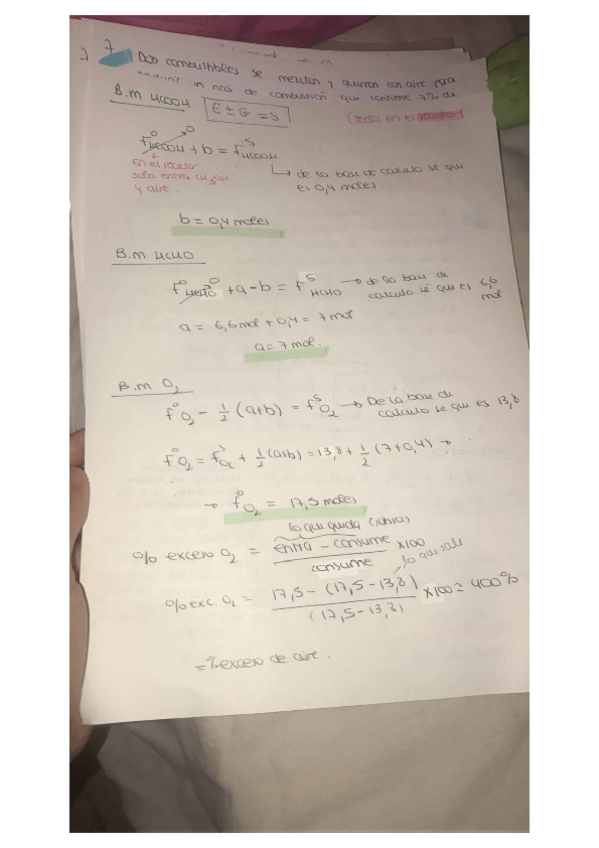 7
Dos combustibles se mezclan y queman con aire para
de combustión que contiene 7% de
B.M HCOOH
E ± G = S
(resto en el
f°HCOOH + b = f^S HCOOH
0
En el reactor
solo entra CH3OH
y aire.
de la base de calculo se que
es 0,4 moles.
b = 0,4 moles
B.M HCHO
f°HCHO + a - b = f^S HCHO → de la base de
0
calculo sé que es 6,6
mol
a = 6,6 mol + 0,4 = 7 mol
a = 7 mol.
B.M O2
f°O2 - 1/2 (a+b) = f^S O2 → De la base de
calculo se que es 13,8
f°O2 = f^S O2 + 1/2 (a+b) = 13,8 + 1/2 (7+0,4) →
→ f°O2 = 17,5 moles
lo que queda (sobra)
% exceso O2 = entra - consume / consume x100
lo que sale
% exc. O2 = 17,5 - (17,5 - 13,8) / (17,5 - 13,8) x100 = 400%
= % exceso de aire.